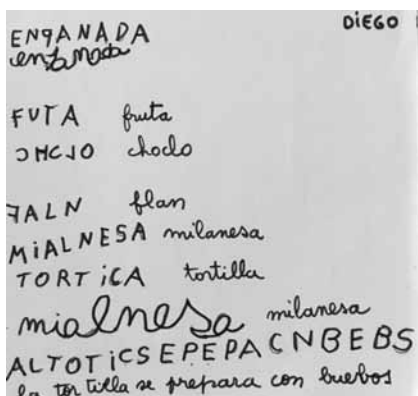 DIEGO
ENPANADA
FUTA fruta
CHCLO choclo
FALN flan
MIALNESA milanesa
TORTICA tortilla
mialnesa milanesa
ALTOTICSEPEPACNBEBS
la tortilla se prepara con buebos